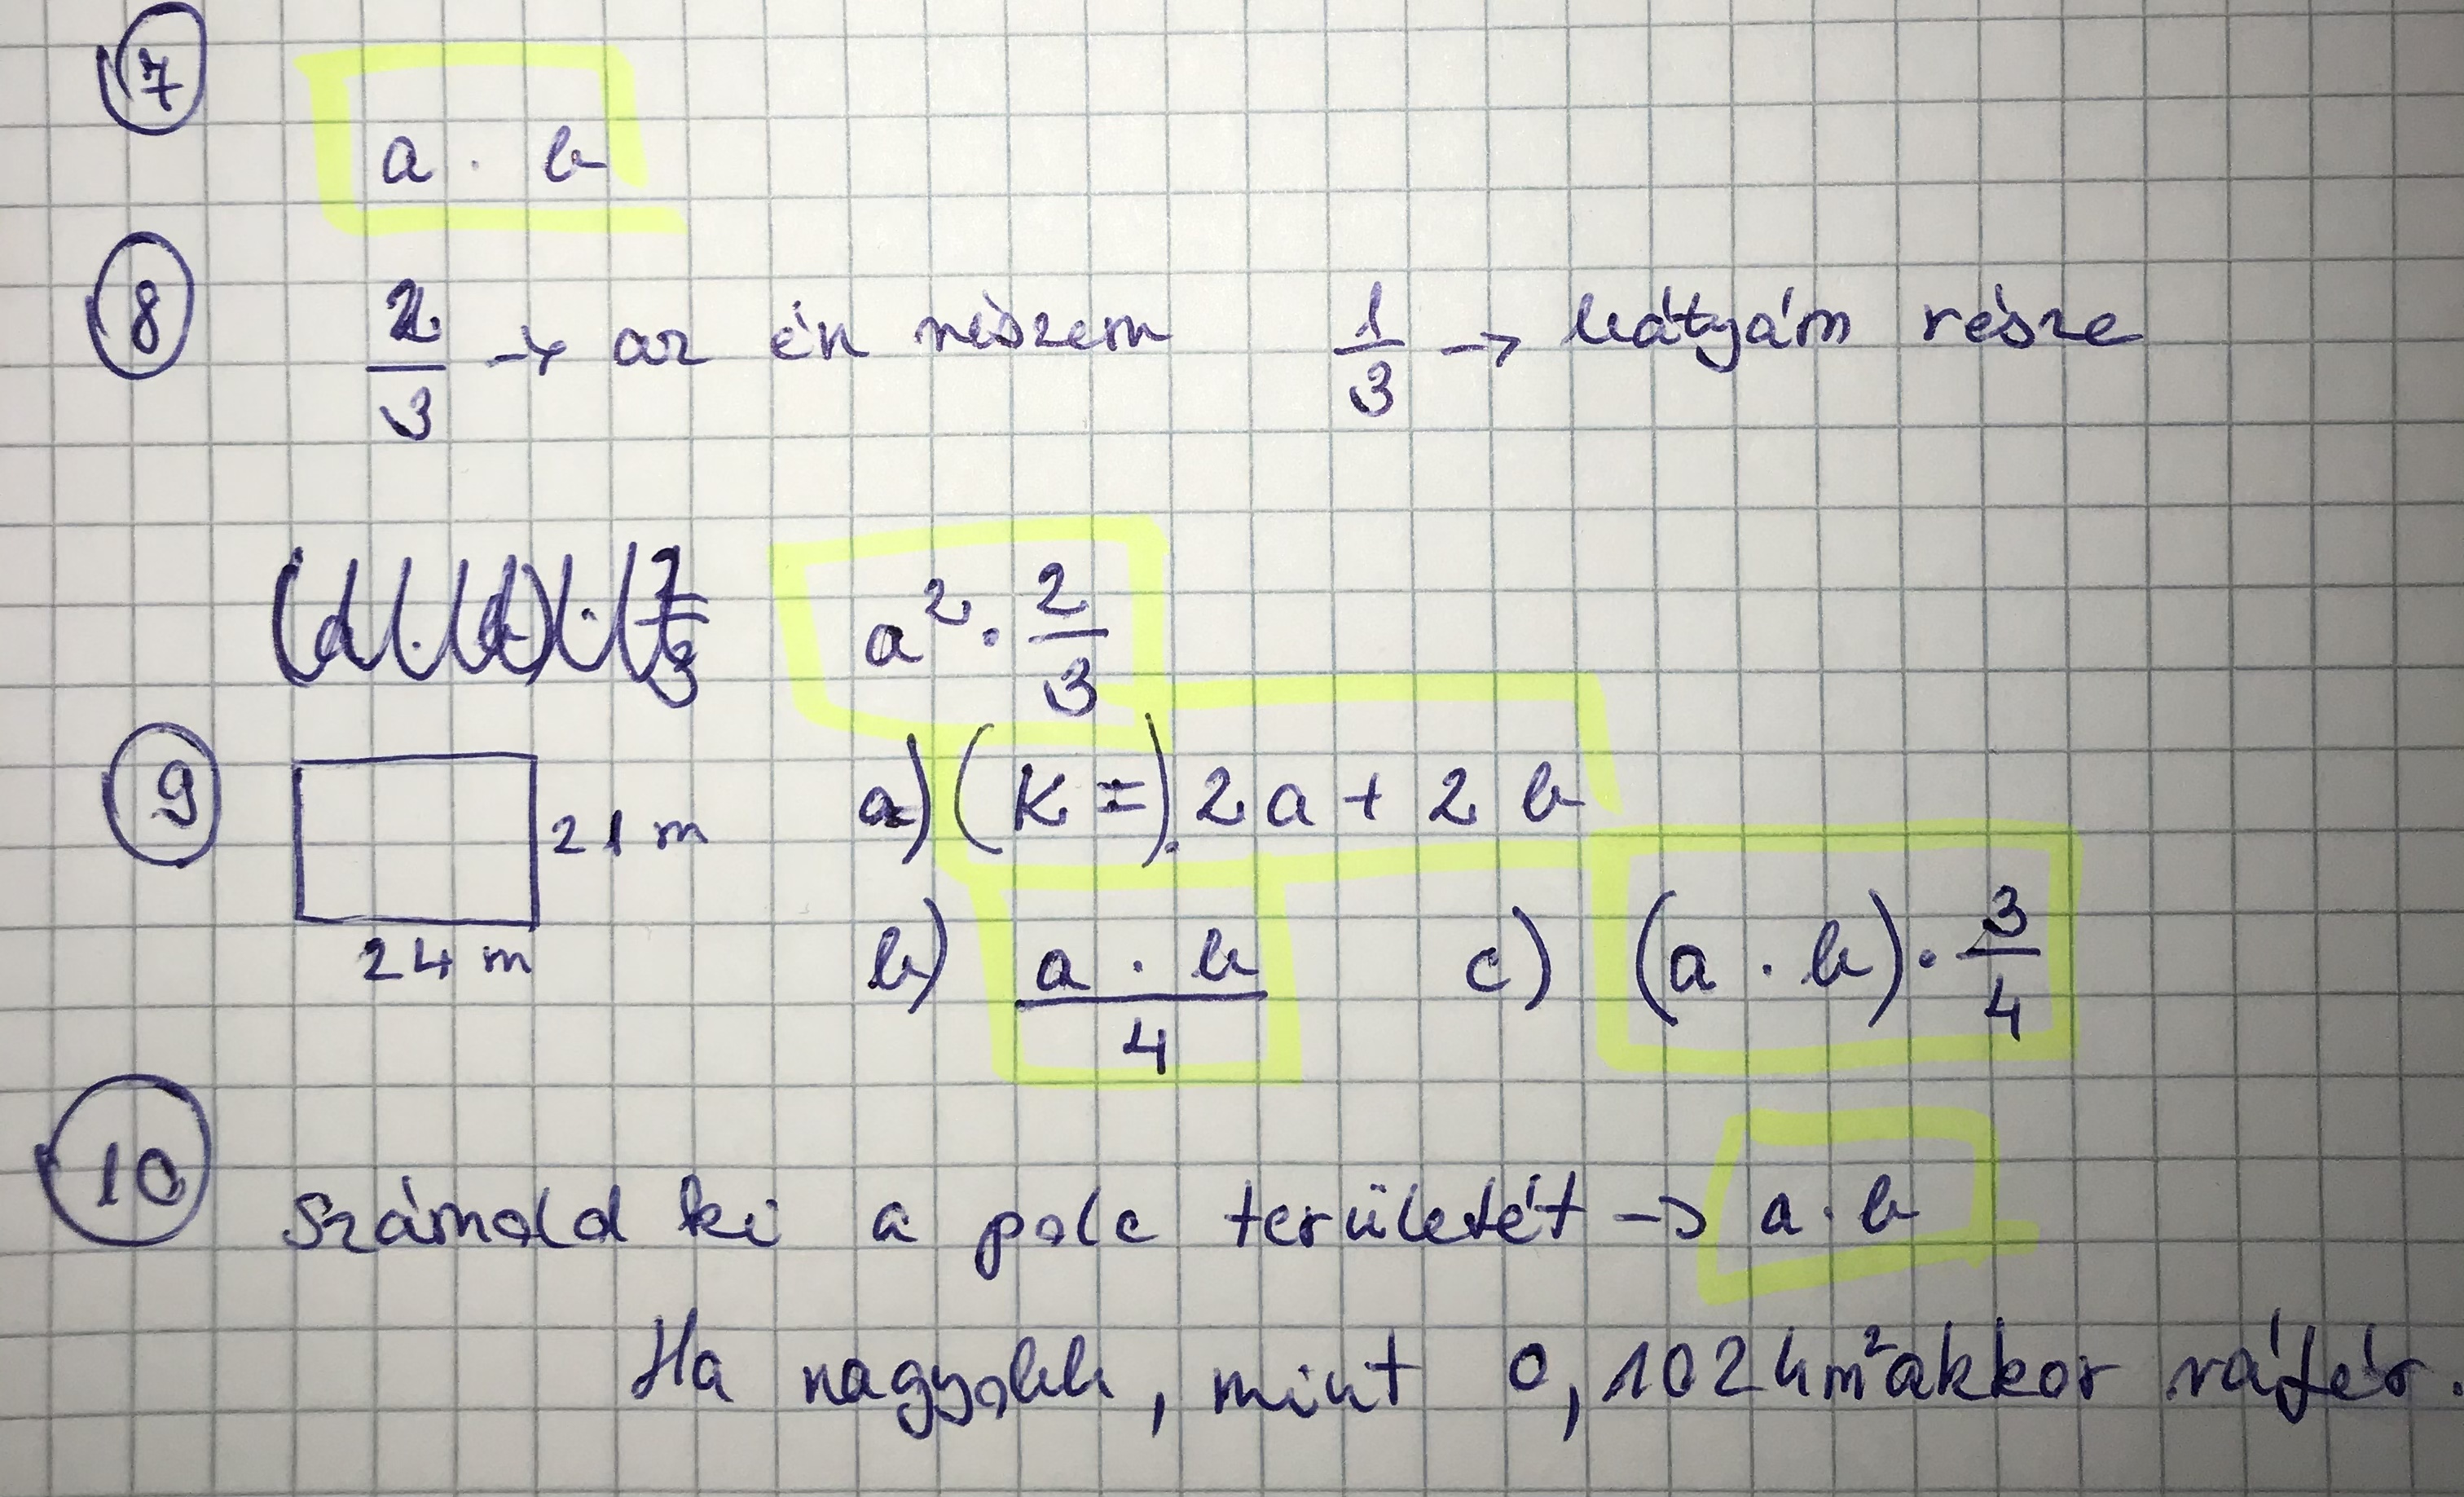 7
a · b
8
2/3 → az én részem 1/3 → bátyám része
a² · 2/3
9
21 m
24 m
a) (K =) 2a + 2b
b) a · b / 4 c) (a · b) · 3/4
10
Számold ki a polc területét → a · b
Ha nagyobb, mint 0,1024 m² akkor ráfér.